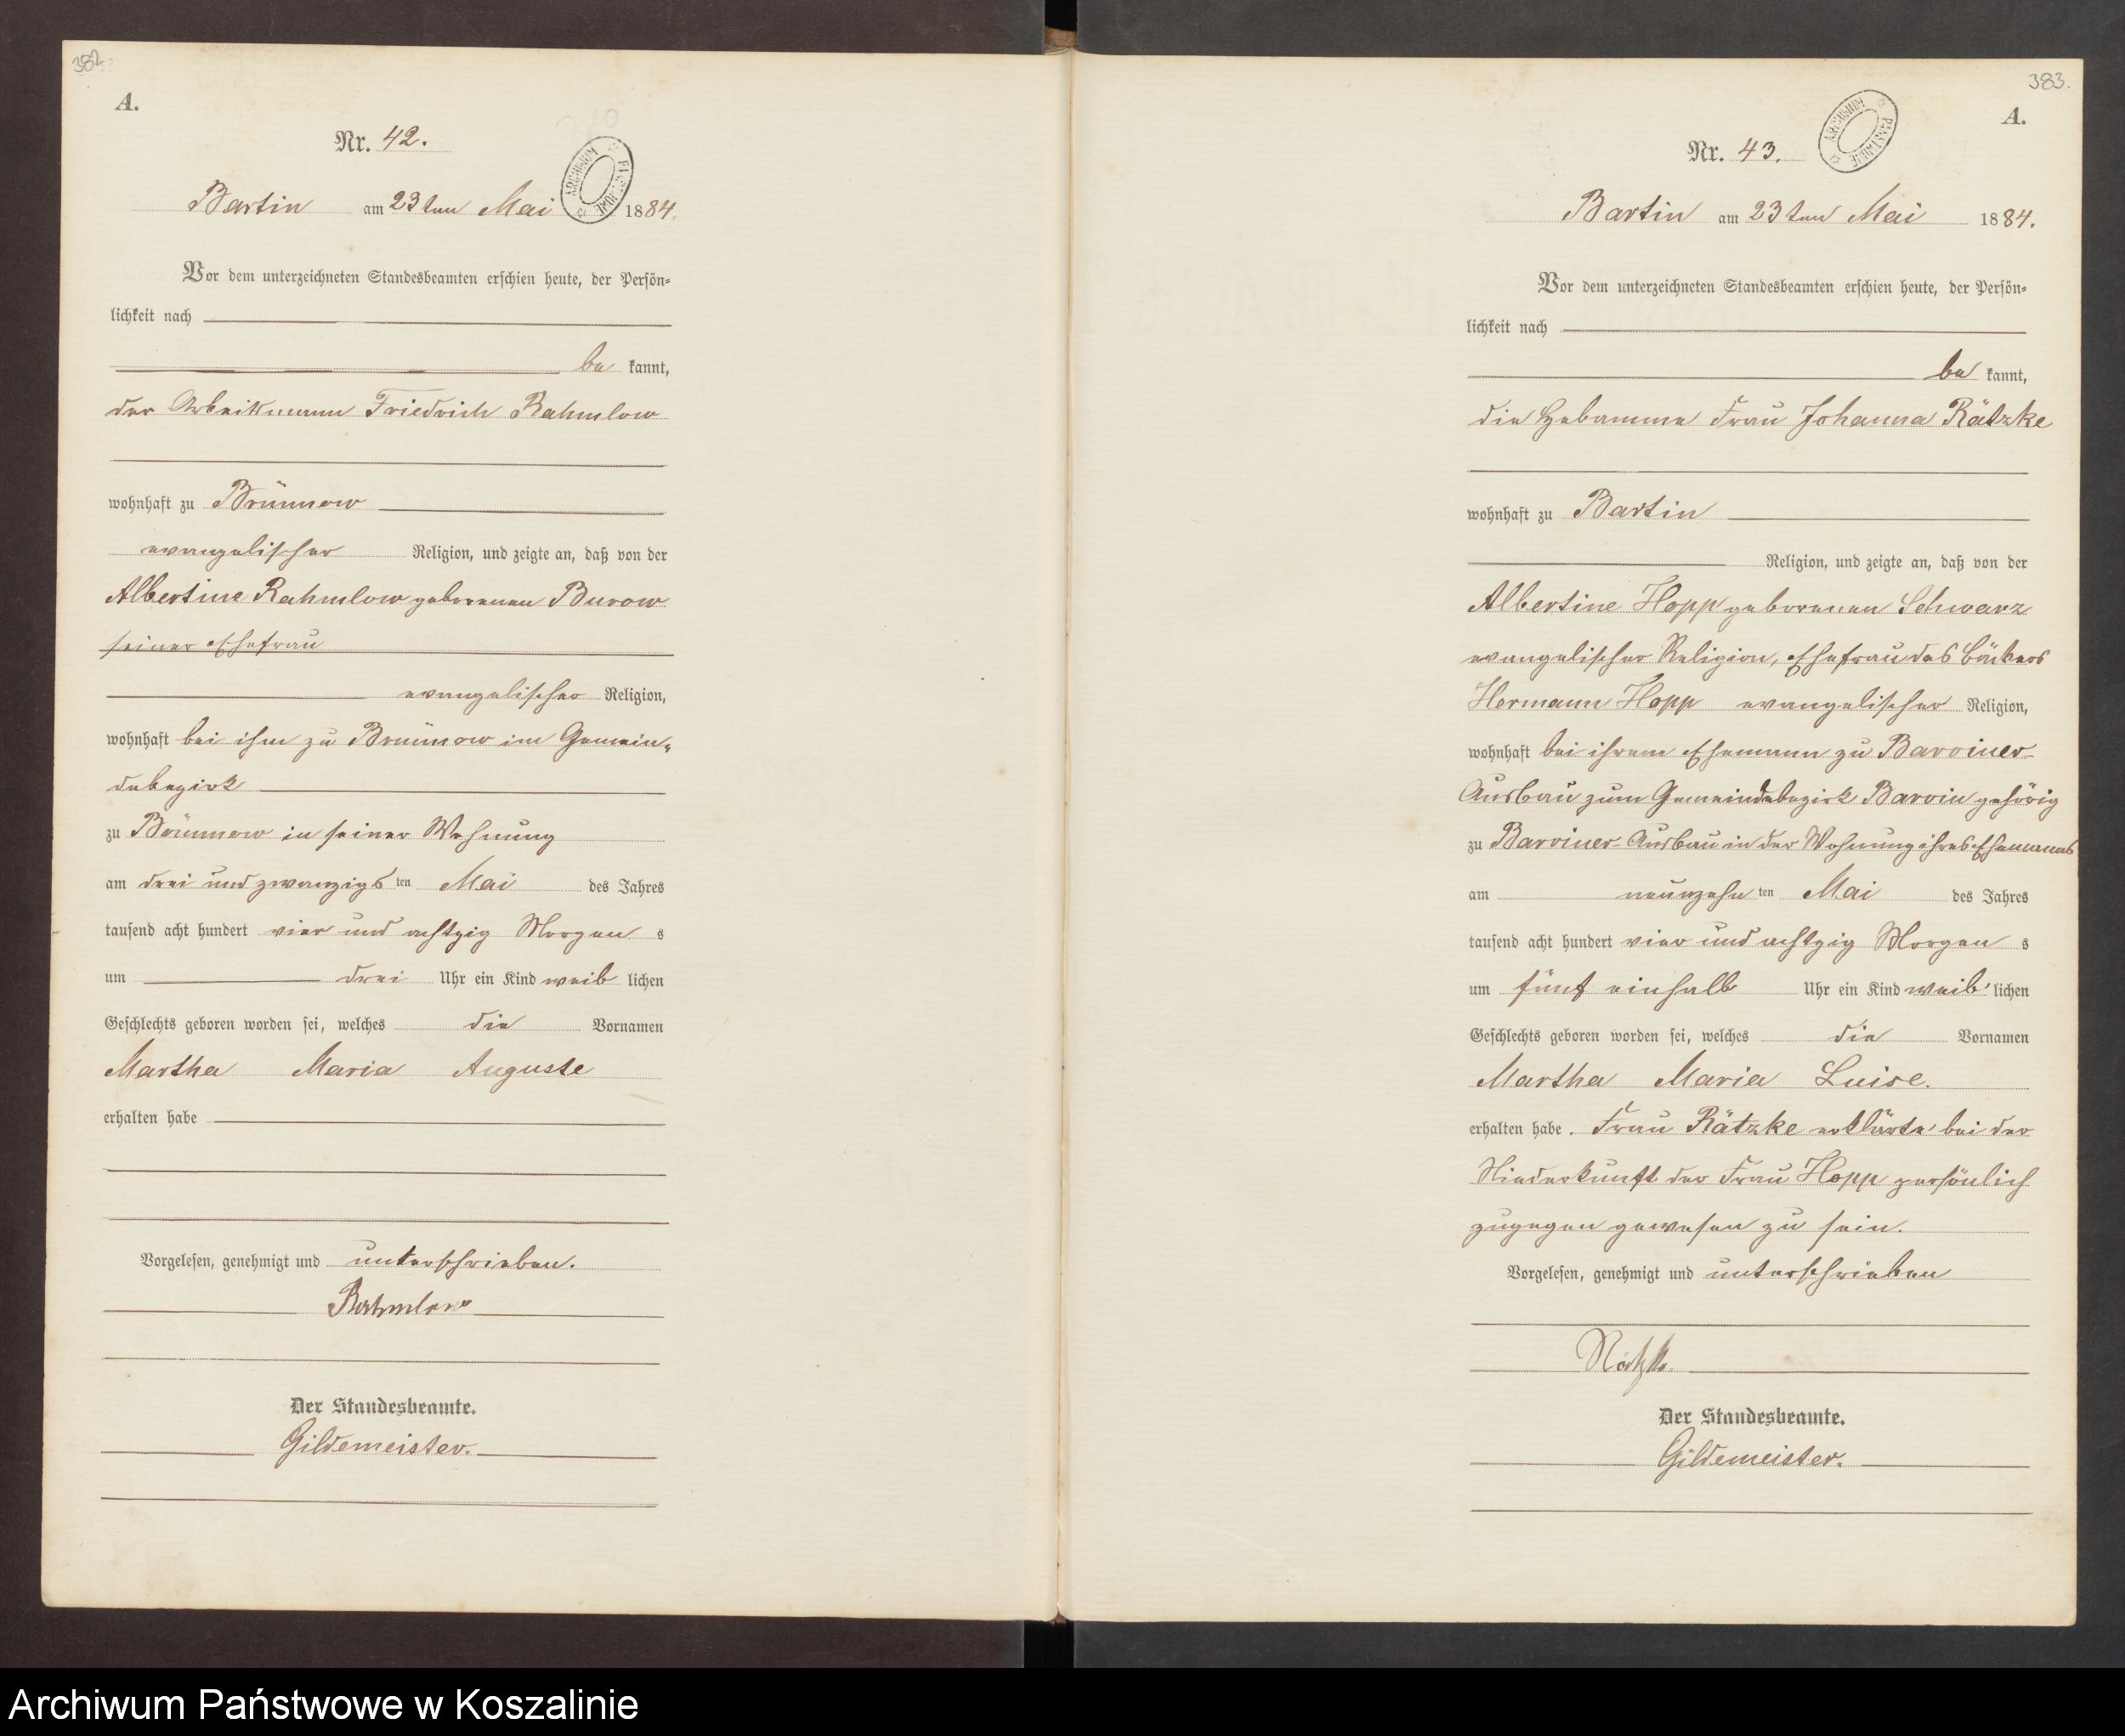 382.
A.
Nr. 42.
ARCHIWUM PAŃSTWOWE
Bartin am 23ten Mai 1884.
Vor dem unterzeichneten Standesbeamten erschien heute, der Persön=
lichkeit nach
be kannt,
der Arbeitsmann Friedrich Rahmlow
wohnhaft zu Brünnow
evangelischer Religion, und zeigte an, daß von der
Albertine Rahmlow geborenen Burow
seiner Ehefrau
evangelischer Religion,
wohnhaft bei ihm zu Brünnow im Gemein=
debezirk
zu Brünnow in seiner Wohnung
am drei und zwanzigs ten Mai des Jahres
tausend acht hundert vier und achtzig Morgen s
um drei Uhr ein Kind weib lichen
Geschlechts geboren worden sei, welches die Vornamen
Martha Maria Auguste
erhalten habe
Vorgelesen, genehmigt und unterschrieben.
Rahmlow
Der Standesbeamte.
Gildemeister.
383.
A.
Nr. 43.
ARCHIWUM PAŃSTWOWE
Bartin am 23ten Mai 1884.
Vor dem unterzeichneten Standesbeamten erschien heute, der Persön=
lichkeit nach
be kannt,
die Hebamme Frau Johanna Rätzke
wohnhaft zu Bartin
Religion, und zeigte an, daß von der
Albertine Hopp geborenen Schwarz
evangelischer Religion, Ehefrau des Bäckers
Hermann Hopp evangelischer Religion,
wohnhaft bei ihrem Ehemann zu Barviner-
Ausbau zum Gemeindebezirk Barvin gehörig
zu Barviner-Ausbau in der Wohnung ihres Ehemanns
am neunzehn ten Mai des Jahres
tausend acht hundert vier und achtzig Morgen s
um fünf einhalb Uhr ein Kind weib lichen
Geschlechts geboren worden sei, welches die Vornamen
Martha Maria Luise.
erhalten habe. Frau Rätzke erklärte bei der
Niederkunft der Frau Hopp persönlich
zugegen gewesen zu sein.
Vorgelesen, genehmigt und unterschrieben
Rätzke.
Der Standesbeamte.
Gildemeister.
Archiwum Państwowe w Koszalinie